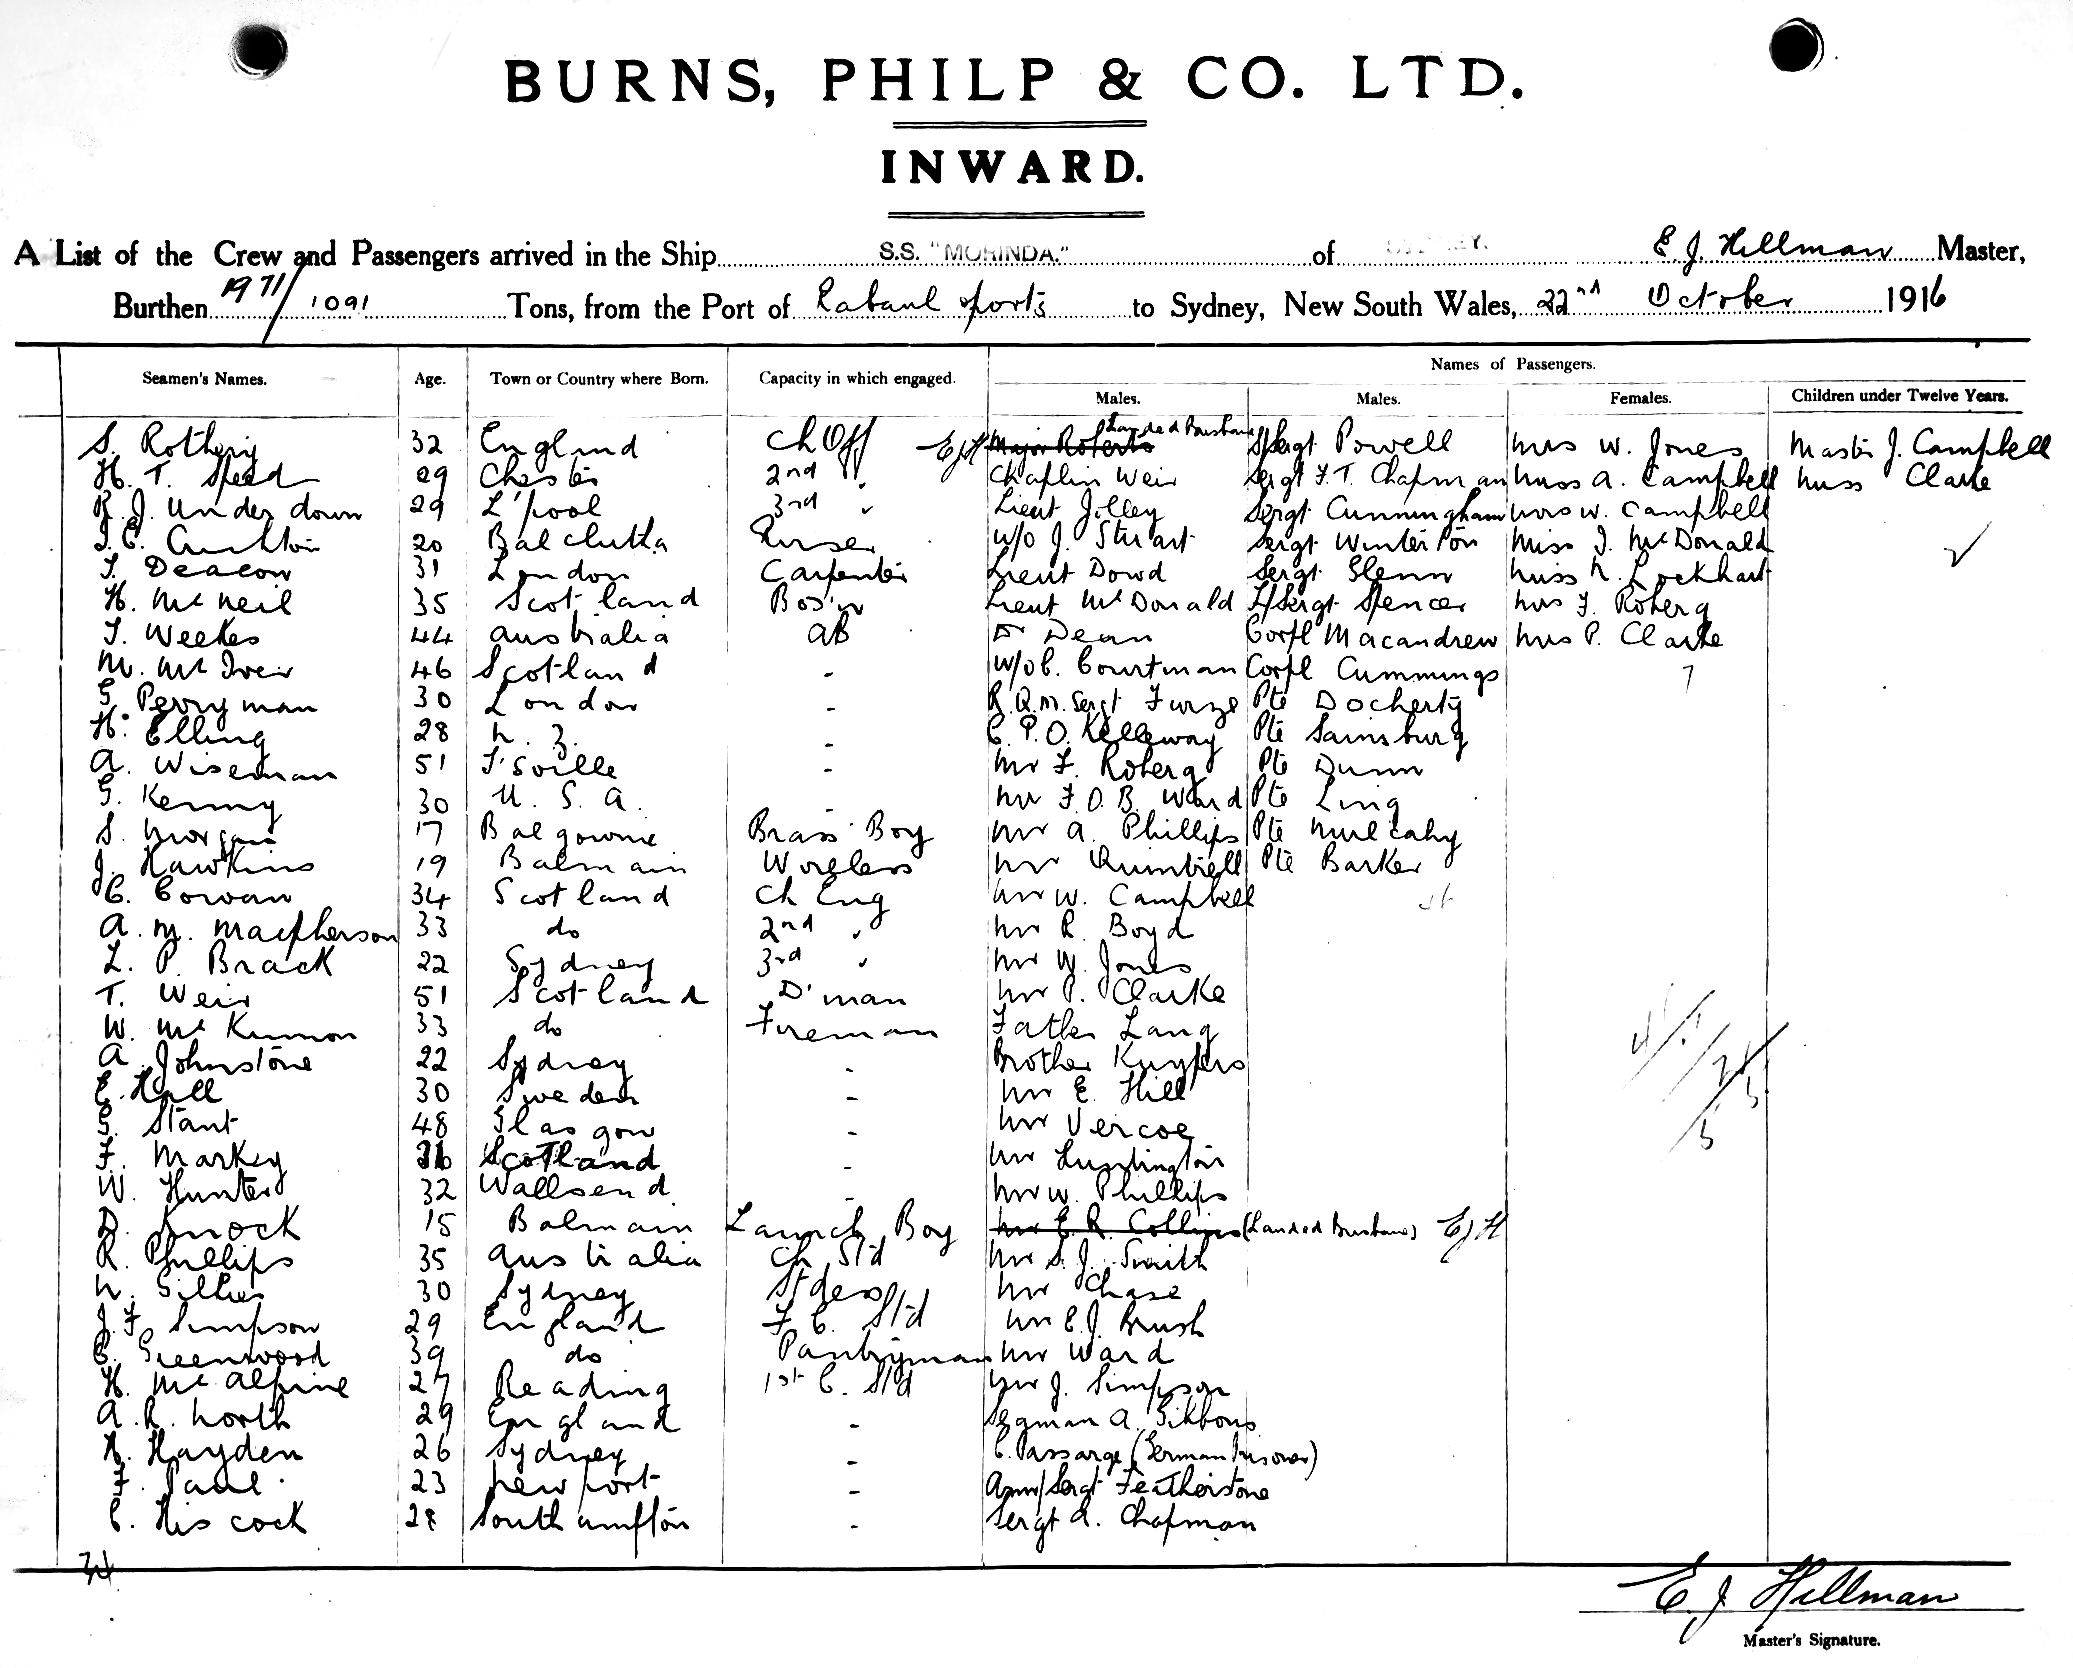 BURNS, PHILP & CO. LTD.
INWARD.
A List of the Crew and Passengers arrived in the Ship S.S. "MORINDA." of SYDNEY. E. J. Hillman Master,
Burthen 1971/1091 Tons, from the Port of Rabaul & ports to Sydney, New South Wales, 22nd October 1916
Names of Passengers.
Seamen's Names. Age. Town or Country where Born. Capacity in which engaged. Males. Males. Females. Children under Twelve Years.
S. Rothery 32 England Ch Off EJH Major Roberts Landed Brisbane S/Sergt Powell Mrs W. Jones Master J. Campbell
H. T. Speed 29 Chester 2nd " Chaplin Weir Sergt F. T. Chapman Miss A. Campbell Miss Clarke
R. J. Underdown 29 L'pool 3rd " Lieut Jilley Sergt Cunningham Mrs W. Campbell
20 Balclutha Purser W/O J. Stuart Sergt Winterton Miss J. McDonald
T. Deacon 31 London Carpenter Lieut Dowd Sergt Glenn Miss N. Lockhart
H. McNeil 35 Scotland Bos'n Lieut McDonald L/Sergt Spencer Mrs F. Roberg
T. Weekes 44 Australia AB Dr Dean Corpl Macandrew Mrs P. Clarke
M. McIver 46 Scotland - W/O C. Courtman Corpl Cummings 7
G. Perryman 30 London - R.Q.M. Sergt Furze Pte Docherty
H. Elling 28 N. Z. - C. P. O. Kelleway Pte Sainsburg
A. Wiseman 51 T'sville - Mr F. Roberg Pte Dunn
G. Kenny 30 U. S. A. - Mr F. O. B. Ward Pte Ling
S. Morgan 17 Balgownie Brass Boy Mr A. Phillips Pte Mulcahy
J. Hawkins 19 Balmain Wireless Mr Rumbiell Pte Barker
C. Cowan 34 Scotland Ch Eng Mr W. Campbell
A. M. Macpherson 33 do 2nd " Mr R. Boyd
L. P. Brack 22 Sydney 3rd " Mr W. Jones
T. Weir 51 Scotland D'man Mr P. Clarke
W. McKinnon 33 do Fireman Father Lang
A. Johnstone 22 Sydney - Brother Kuypers
E. Hall 30 Sweden - Mr E. Hill
G. Stant 48 Glasgow - Mr Vercoe
F. Markey Scotland - Mr Luntington
W. Hunter 32 Wallsend - Mr W. Phillips
D. Snock 15 Balmain Launch Boy Mr E. R. Collins (Landed Brisbane) EJH
R. Phillips 35 Australia Ch St'd Mr S. J. Smith
N. Gillies 30 Sydney St'dess Mr Chase
J. F. Simpson 29 England F. C. St'd Mr E. J. Brush
C. Greenwood 39 do Pantryman Mr Ward
H. McAlpine 27 Reading 1st C. St'd Mr J. Simpson
A. R. North 29 England - Sigman A. Gibbons
H. Hayden 26 Sydney - C. Passarge (German Prisoner)
F. Paul 23 Newport - Arm/Sergt Featherstone
C. Hiscock 28 Southampton - Sergt A. Chapman
34
E. J. Hillman
Master's Signature.